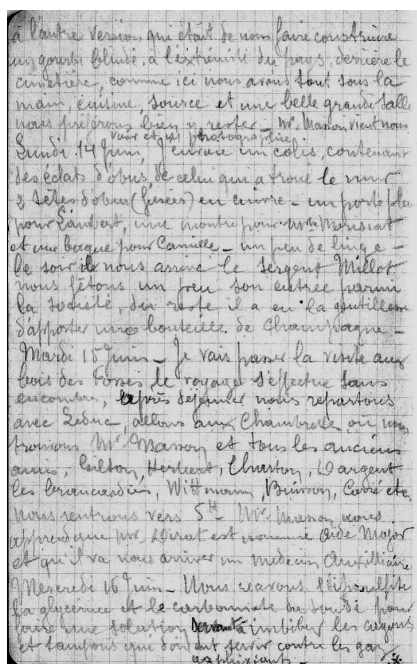 à l'autre version qui était de nous faire construire
un gourbi blindé, à l'extrémité du parc, derrière le
cimetière, comme ici nous avons tout sous la
main, cuisine, source et une belle grande salle
nous préférons bien y rester _ Mr. Masson vient nous
voir et me photographier
Lundi 14 Juin, J'envoie un colis, contenant
des éclats d'obus de celui qui a troué le mur
2 têtes d'obus (fusées) en cuivre _ un porte plume
pour Lambert, une montre pour Mme
et une bague pour Camille _ un peu de linge _
Le soir il nous arrive le Sergent Millot
nous fêtons un peu son entrée parmi
la société, du reste il a eu la gentillesse
d'apporter une bouteille de Champagne _
Mardi 15 Juin _ Je vais passer la visite aux
bois des Fosses, le voyage s'effectue sans
encombre, après déjeuner nous repartons
avec Leduc, allons aux Chambrettes où nous
trouvons Mr Masson et tous les anciens
amis, Hilton, Herbert, Charton, Dargent
les brancardiers, Wittmann, Buisson, Carré etc
nous rentrons vers 5h Mr. Masson nous
apprend que Mr. est nommé Aide Major
et qu'il va nous arriver un médecin Auxilliaire
Mercredi 16 Juin _ Nous recevons l'hiposulfite
la glycérine et le carbonate de soude pour
faire une solution devant imbiber les cagoules
et tampons que doivent servir contre les gaz
asphyxiants _